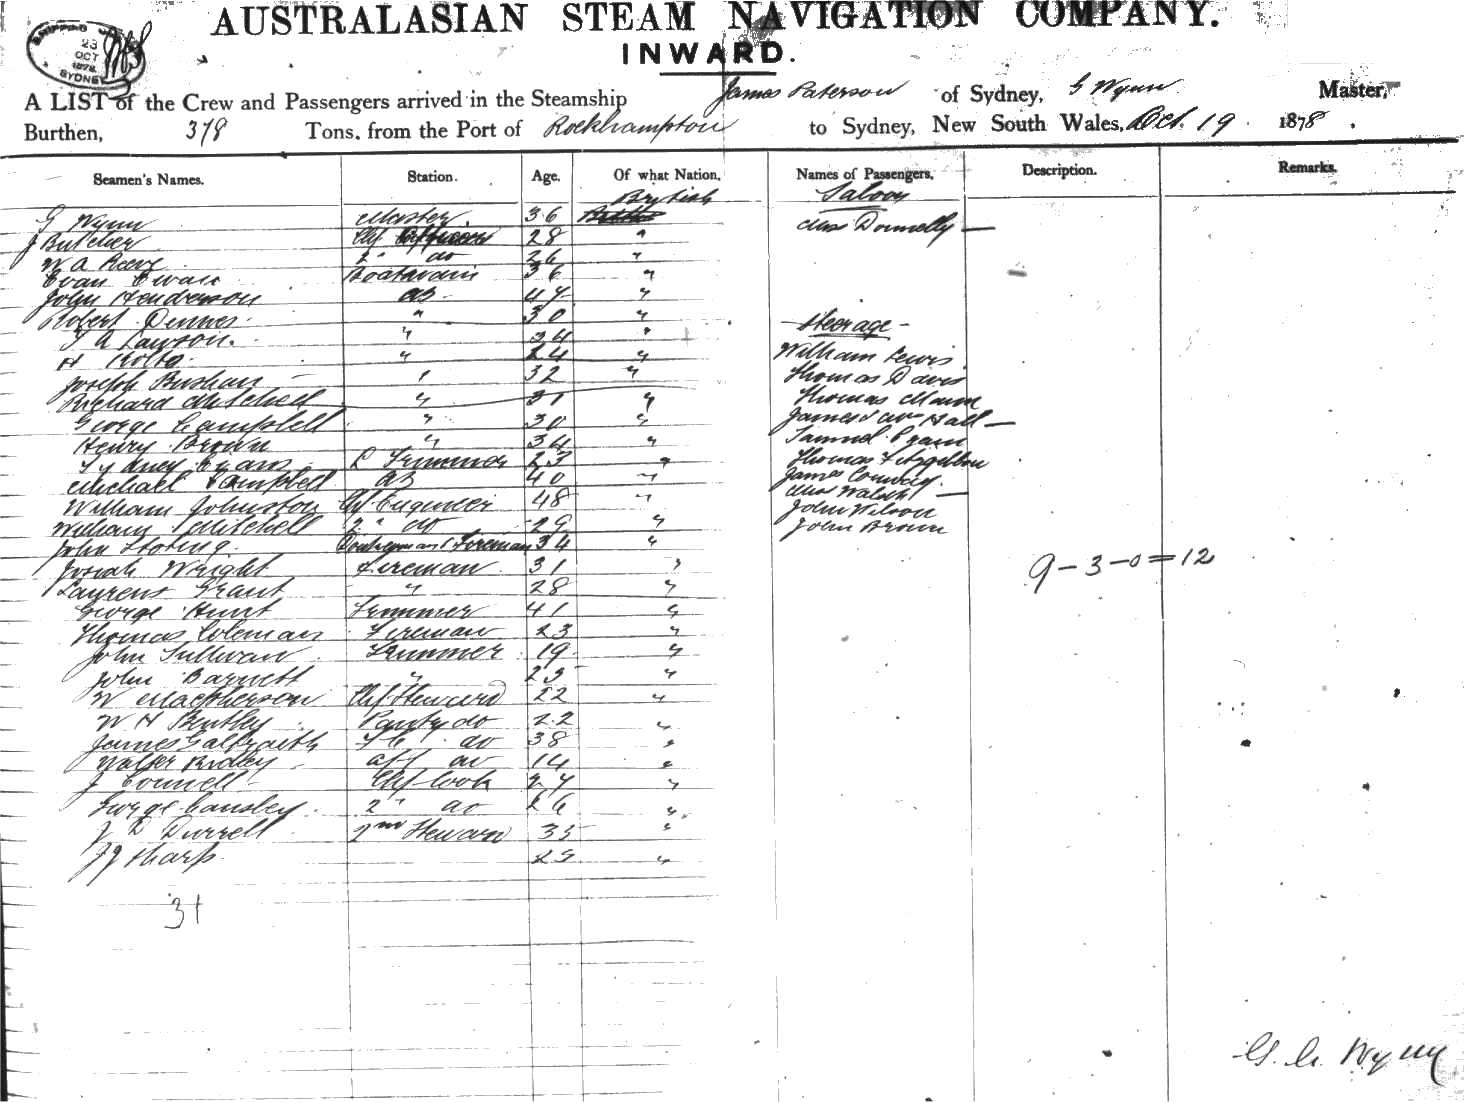 AUSTRALASIAN STEAM NAVIGATION COMPANY.
INWARD.
SHIPPING 23 OCT 1878 SYDNEY
A LIST of the Crew and Passengers arrived in the Steamship James Paterson of Sydney, G Wynn Master,
Burthen, 378 Tons, from the Port of Rockhampton to Sydney, New South Wales, Oct. 19 1878.
Seamen's Names. Station. Age. Of what Nation. Names of Passengers. Description. Remarks.
British Saloon
G Wynn Master. 36 Miss Donnelly —
J Butcher Chf 28 "
W A Reeve 2" do 26 "
Evan Evans 36 "
John Henderson AB 47 "
Robert 30 "
Steerage
T A Lawson. " 34 "
H " 24 " William Lewis
Joseph " 32 " Thomas Davis
Richard Mitchell " 31 " Thomas Mann
George Campbell " 30 " Hall —
Henry Brown " 34 " Samuel
Sydney Evans L Trimmer 23 " Thomas Fitzgibbon
Michael Campbell AB 40 " James Conway.
William Johnston Chf Engineer 48 " Miss Walsh —
John Wilson
William Mitchell 2" do 29 " John Brown
John Fireman 34 "
Josiah Wright Fireman 31 "
9 – 3 – 0 = 12
Laurens Grant " 28 "
George Hunt Trimmer 41 "
Thomas Coleman Fireman 23 "
John Sullivan Trimmer 19 "
John Barnett " 23 "
W Macpherson Chf Steward 22 "
W H Bentley Pantry do 22 "
James Galbraith do 38 "
Walter Ridley do 14 "
J Connell Chf Cook 27 "
George Cansley 2" do 26 "
J D Durrell 2nd Steward 35 "
J J Sharp 25 "
31
G. G. Wynn